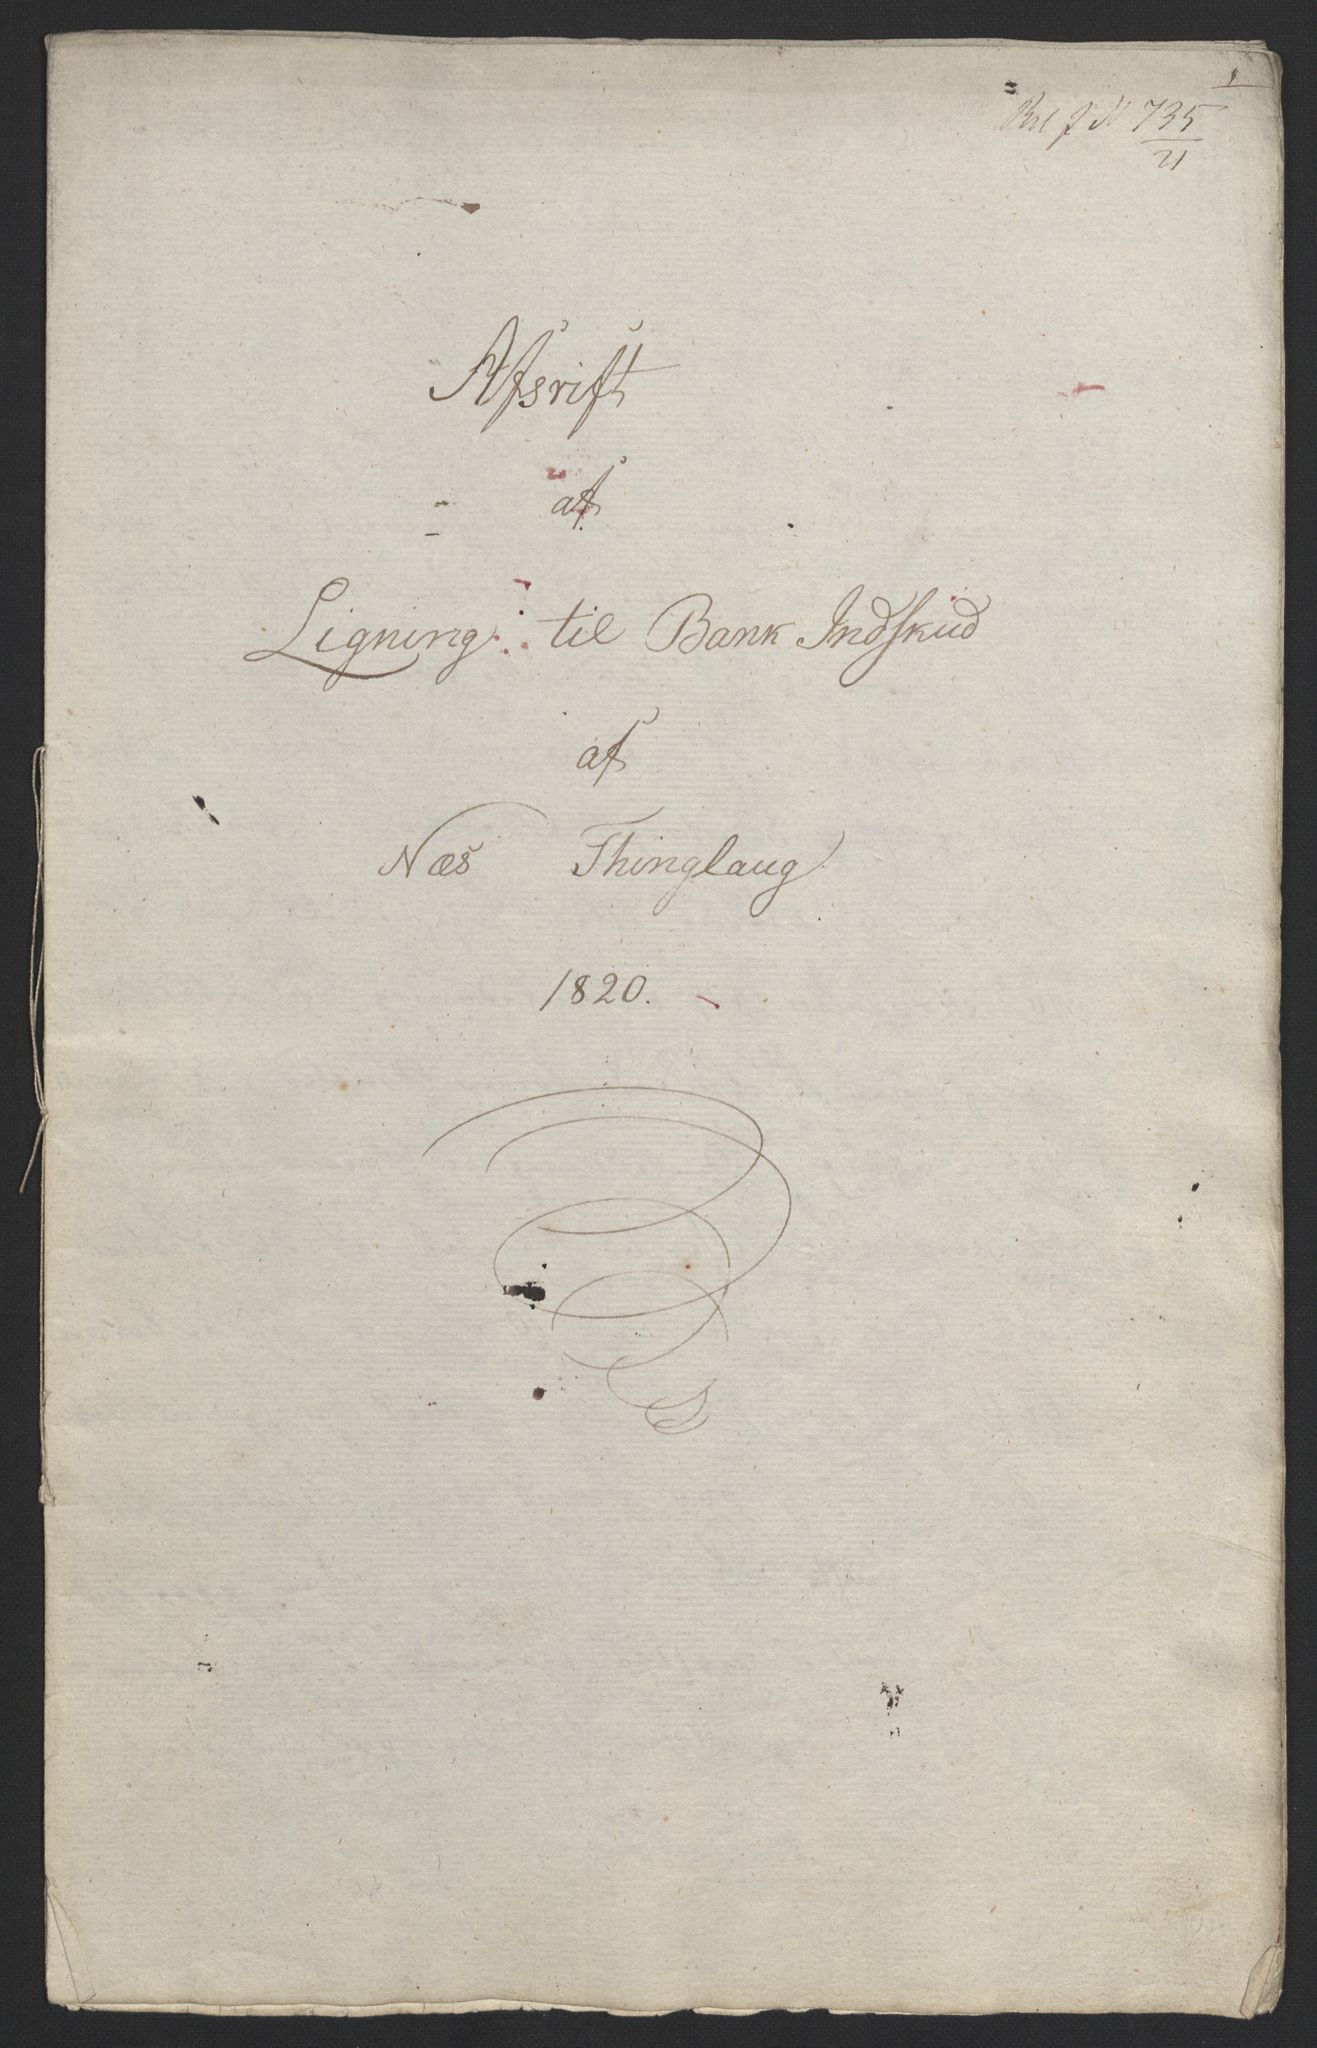 1
J N 735
21
Afsrift
af
Ligning til Bank Indskud
af
Næs Thinglaug
1820.